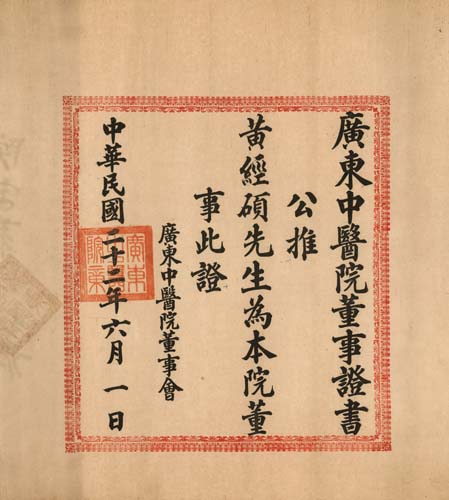 廣東中醫院董事證書
公推
黃經碩先生為本院董
事此證
廣東中醫院董事會
中華民國二十二年六月一日